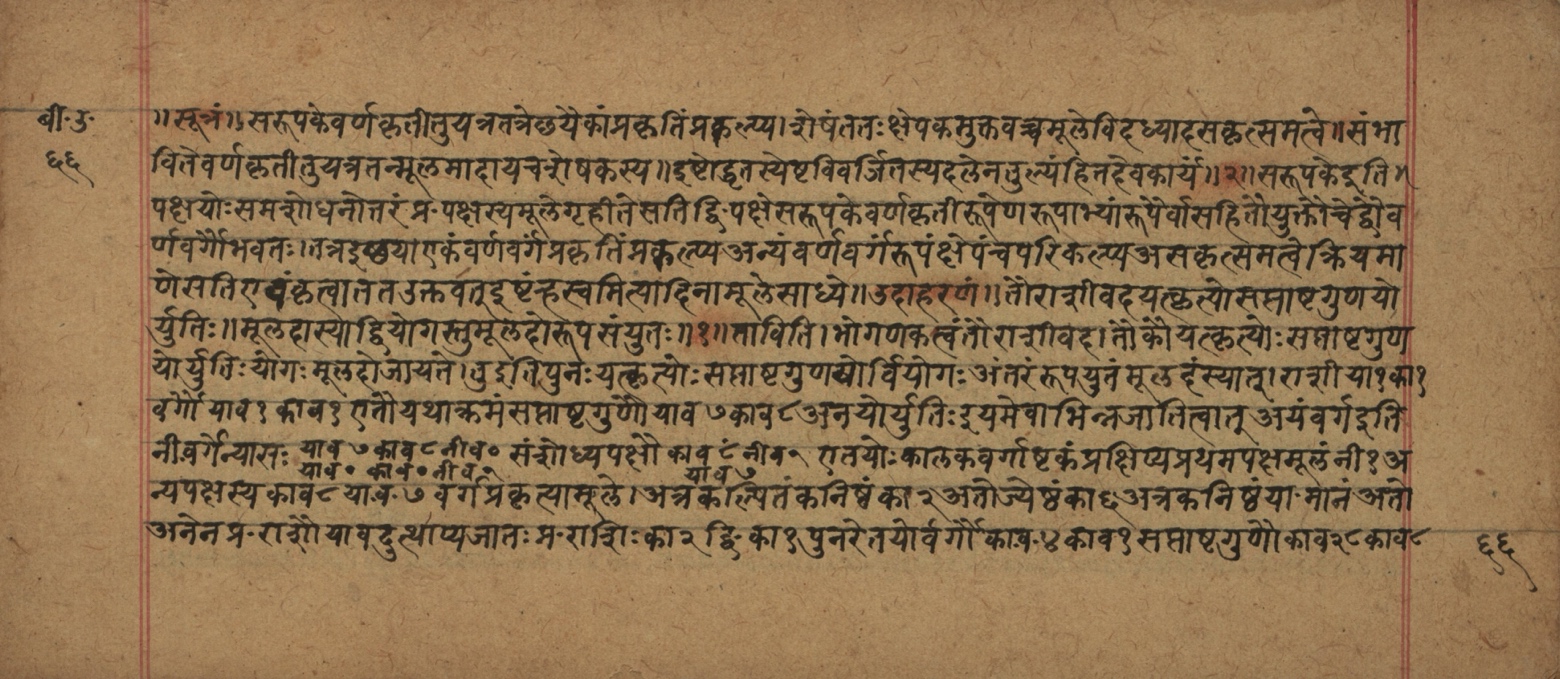 बी॰उ॰
६६
॥सूत्रं॥सरूपकेवर्णकृतीतुयत्रतत्रेछयैकांप्रकृतिंप्रकल्प्य।शेषंततःक्षेपकमुक्तवच्चमूलेविदध्यादसकृत्समत्वे॥संभा
वितेवर्णकृतीतुयत्रतन्मूलमादायचशेषकस्य॥इष्टोद्धृतस्येष्टविवर्जितस्यदलेनतुल्यंहितदेवकार्यं॥२॥सरूपकेइति॥
पक्षयोःसमशोधनोत्तरंप्र॰पक्षस्यमूलेगृहीतेसतिद्वि॰पक्षेसरूपकेवर्णकृतीरूपेणरूपाभ्यांरूपैर्वासहितौयुक्तौचेद्द्वौव
र्णवर्गौभवतः।तत्रइछयाएकंवर्णवर्गंप्रकृतिंप्रकल्प्यअन्यंवर्णवर्गंरूपंक्षेपंचपरिकल्प्यअसकृत्समत्वेक्रियमा
णेसतिएवंकृत्वाततउक्तवत्इष्टंह्रस्वमित्यादिनामूलेसाध्ये॥उदाहरणं॥तौराशीवदयत्कृत्योसप्ताष्टगुणयो
र्युतिः॥मूलदास्याद्वियोगस्तुमूलदोरूपसंयुतः॥१॥ताविति।भोगणकत्वंतौराशीवद।तौकौयत्कृत्योःसप्ताष्टगुण
योर्युतिःयोगःमूलदोजायते।तुइतिपुनःयत्कृत्योःसप्ताष्टगुणयोर्वियोगःअंतरंरूपयुतंमूलदंस्यात्।राशीया१का१
वर्गौयाव१काव१एतौयथाक्रमंसप्ताष्टगुणौयाव७काव८अनयोर्युतिःइयमेवाभिन्नजातित्वात्अयंवर्गइति
नी॰वर्गेन्यासःयाव७काव८नीव०संशोध्यपक्षौकाव८ंनीव१एतयोःकालकवर्गाष्टकंप्रक्षिप्यप्रथमपक्षमूलंनी१अ
याव०काव०नीव१ याव७
न्यपक्षस्यकाव८याव॰७वर्गप्रकृत्यामूले।अत्रकल्पितंकनिष्ठंका२अतोज्येष्ठंका६अत्रकनिष्ठंया॰मानंअतो
अनेनप्र॰राशौयावदुत्थाप्यजातःप्र॰राशिःका२द्वि॰का१पुनरेतयोर्वर्गौकाव॰४काव१सप्ताष्टगुणौकाव२८काव८
६६